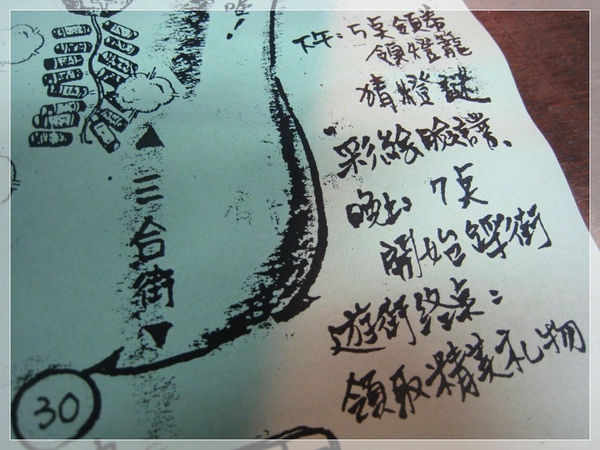 下午:5桌領券
領燈籠
猜燈謎
彩繪臉譜、
晚上: 7桌
開始踩街
遊街終桌:
領取精美礼物
三台街
30